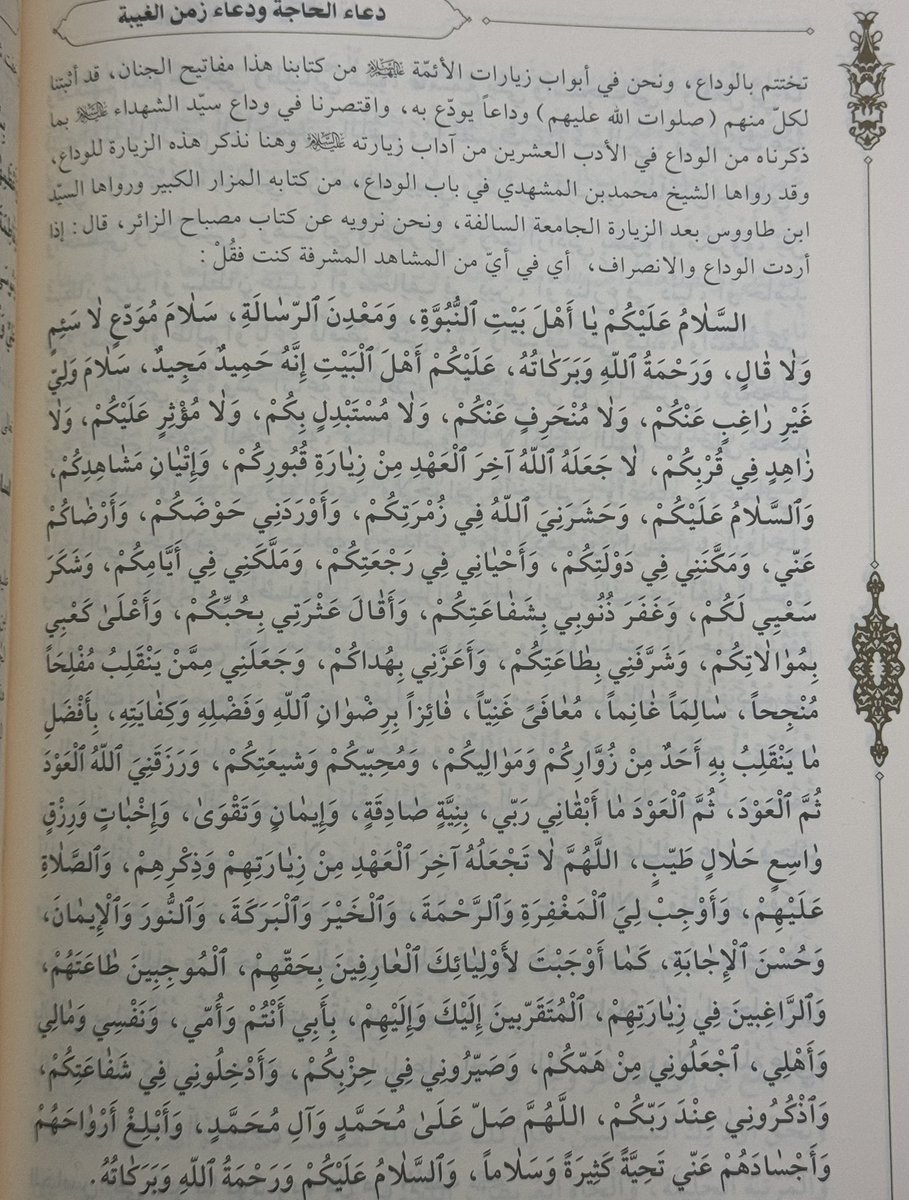 دعاء الحاجة ودعاء زمن الغيبة
تختتم بالوداع، ونحن في أبواب زيارات الأئمّة عليهم السلام من كتابنا هذا مفاتيح الجنان، قد أثبتنا
لكلّ منهم (صلوات الله عليهم) وداعاً يودّع به، واقتصرنا في وداع سيّد الشهداء عليه السلام بما
ذكرناه من الوداع في الأدب العشرين من آداب زيارته عليه السلام وهنا نذكر هذه الزيارة للوداع،
وقد رواها الشيخ محمدبن المشهدي في باب الوداع، من كتابه المزار الكبير ورواها السيّد
ابن طاووس بعد الزيارة الجامعة السالفة، ونحن نرويه عن كتاب مصباح الزائر، قال: إذا
أردت الوداع والانصراف، أي في أيّ من المشاهد المشرفة كنت فقُلْ:
السَّلٰامُ عَلَيْكُمْ يٰا أَهْلَ بَيْتِ ٱلنُّبُوَّةِ، وَمَعْدِنَ ٱلرِّسٰالَةِ، سَلٰامَ مُوَدِّعٍ لٰا سَئِمٍ
وَلٰا قٰالٍ، وَرَحْمَةُ ٱللّٰهِ وَبَرَكٰاتُهُ، عَلَيْكُمْ أَهْلَ ٱلْبَيْتِ إِنَّهُ حَمِيدٌ مَجِيدٌ، سَلٰامَ وَلِيٍّ
غَيْرِ رٰاغِبٍ عَنْكُمْ، وَلٰا مُنْحَرِفٍ عَنْكُمْ، وَلٰا مُسْتَبْدِلٍ بِكُمْ، وَلٰا مُؤْثِرٍ عَلَيْكُمْ، وَلٰا
زٰاهِدٍ فِي قُرْبِكُمْ، لٰا جَعَلَهُ ٱللّٰهُ آخِرَ ٱلْعَهْدِ مِنْ زِيٰارَةِ قُبُورِكُمْ، وَإِتْيٰانِ مَشٰاهِدِكُمْ،
وَٱلسَّلٰامُ عَلَيْكُمْ، وَحَشَرَنِيَ ٱللّٰهُ فِي زُمْرَتِكُمْ، وَأَوْرَدَنِي حَوْضَكُمْ، وَأَرْضٰاكُمْ
عَنِّي، وَمَكَّنَنِي فِي دَوْلَتِكُمْ، وَأَحْيٰانِي فِي رَجْعَتِكُمْ، وَمَلَّكَنِي فِي أَيَّامِكُمْ، وَشَكَرَ
سَعْيِي لَكُمْ، وَغَفَرَ ذُنُوبِي بِشَفٰاعَتِكُمْ، وَأَقٰالَ عَثْرَتِي بِحُبِّكُمْ، وَأَعْلَىٰ كَعْبِي
بِمُوٰالٰاتِكُمْ، وَشَرَّفَنِي بِطٰاعَتِكُمْ، وَأَعَزَّنِي بِهُدٰاكُمْ، وَجَعَلَنِي مِمَّنْ يَنْقَلِبُ مُفْلِحَاً
مُنْجِحاً، سٰالِمَاً غٰانِماً، مُعٰافىً غَنِيّاً، فٰائِزاً بِرِضْوٰانِ ٱللّٰهِ وَفَضْلِهِ وَكِفٰايَتِهِ، بِأَفْضَلِ
مٰا يَنْقَلِبُ بِهِ أَحَدٌ مِنْ زُوَّارِكُمْ وَمَوٰالِيكُمْ، وَمُحِبِّيكُمْ وَشِيعَتِكُمْ، وَرَزَقَنِيَ ٱللّٰهُ ٱلْعَوْدَ
ثُمَّ ٱلْعَوْدَ، ثُمَّ ٱلْعَوْدَ مٰا أَبْقٰانِي رَبِّي، بِنِيَّةٍ صٰادِقَةٍ، وَإِيمٰانٍ وَتَقْوَىٰ، وَإِخْبٰاتٍ وَرِزْقٍ
وٰاسِعٍ حَلٰالٍ طَيِّبٍ، اللَّهُمَّ لٰا تَجْعَلْهُ آخِرَ ٱلْعَهْدِ مِنْ زِيٰارَتِهِمْ وَذِكْرِهِمْ، وَٱلصَّلٰاةِ
عَلَيْهِمْ، وَأَوْجِبْ لِيَ ٱلْمَغْفِرَةَ وَٱلرَّحْمَةَ، وَٱلْخَيْرَ وَٱلْبَرَكَةَ، وَٱلنُّورَ وَٱلْإِيمٰانَ،
وَحُسْنَ ٱلْإِجٰابَةِ، كَمٰا أَوْجَبْتَ لِأَوْلِيٰائِكَ ٱلْعٰارِفِينَ بِحَقِّهِمْ، ٱلْمُوجِبِينَ طٰاعَتَهُمْ،
وَٱلرَّاغِبِينَ فِي زِيٰارَتِهِمْ، ٱلْمُتَقَرِّبِينَ إِلَيْكَ وَإِلَيْهِمْ، بِأَبِي أَنْتُمْ وَأُمِّي، وَنَفْسِي وَمٰالِي
وَأَهْلِي، ٱجْعَلُونِي مِنْ هَمِّكُمْ، وَصَيِّرُونِي فِي حِزْبِكُمْ، وَأَدْخِلُونِي فِي شَفٰاعَتِكُمْ،
وَٱذْكُرُونِي عِنْدَ رَبِّكُمْ، اللَّهُمَّ صَلِّ عَلَىٰ مُحَمَّدٍ وَآلِ مُحَمَّدٍ، وَأَبْلِغْ أَرْوٰاحَهُمْ
وَأَجْسٰادَهُمْ عَنِّي تَحِيَّةً كَثِيرَةً وَسَلٰاماً، وَٱلسَّلٰامُ عَلَيْكُمْ وَرَحْمَةُ ٱللّٰهِ وَبَرَكٰاتُهُ.